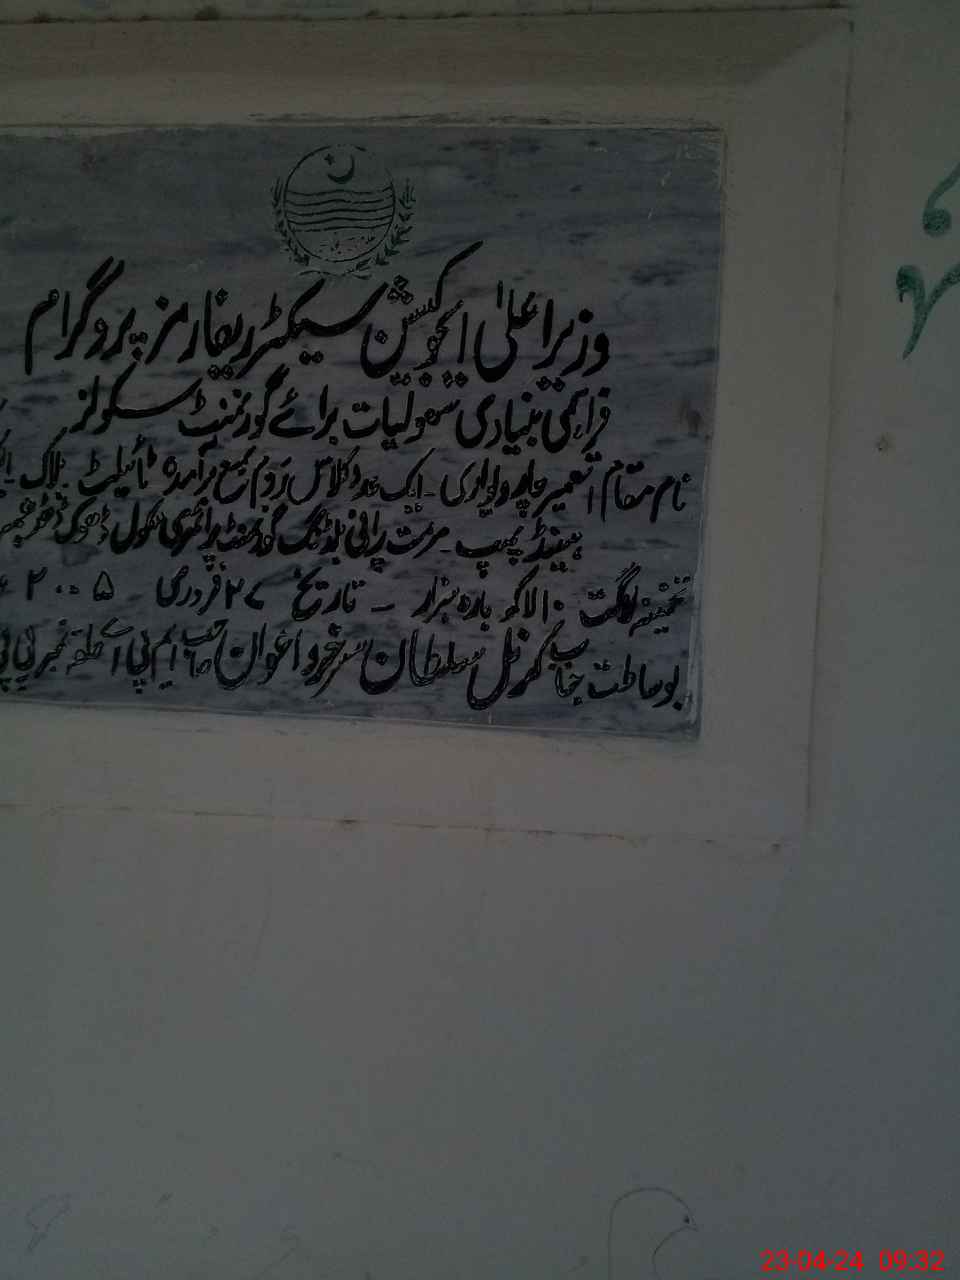 وزیراعلیٰ ایجوکیشن سیکٹر ریفارمز پروگرام
فراہمی بنیادی سہولیات برائے گورنمنٹ سکولز
نام مقام تعمیر چار دیواری ۔ ایک عدد کلاس روم بمع برآمدہ ٹائیلٹ بلاک
ہینڈ پمپ ۔ مرمت پرانی بلڈنگ گورنمنٹ پرائمری سکول ڈھوک
تخمینہ لاگت ۱۰ لاکھ بارہ ہزار ۔ تاریخ ۲۷ فروری ۲۰۰۵
بوساطت جناب کرنل سلطان سرخرو اعوان صاحب ایم پی اے حلقہ نمبر پی پی
23-04-24 09:32